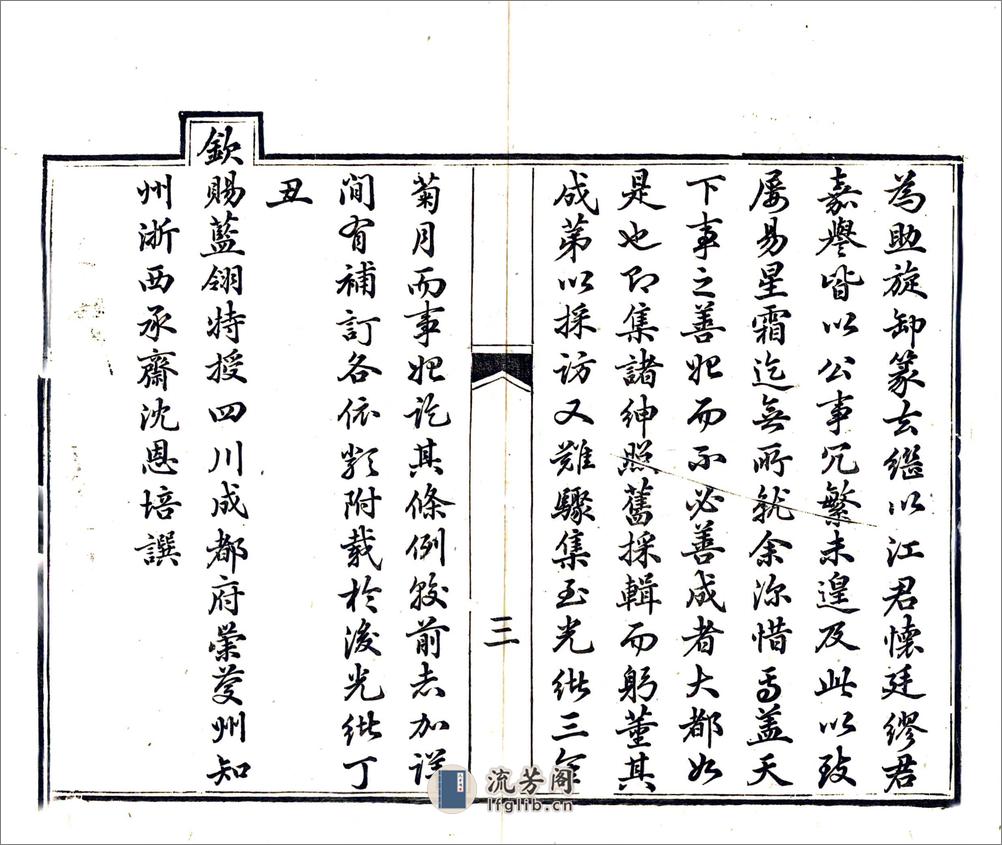 為助旋卸篆去繼以江君懐廷繆君
嘉譽皆以公事冗繁未遑及此以致
屡易星霜迄無所就余深惜焉盖天
下事之善始而不必善成者大都如
是也卽集諸紳照舊採輯而躬董其
成第以採访又難驟集至光緒三年
三
菊月而事始訖其條例較前志加详
间有補訂各依類附载於後光緒丁
丑
欽賜藍翎特授四川成都府崇慶州知
州浙西承齋沈恩培譔
流芳阁
lfglib.cn